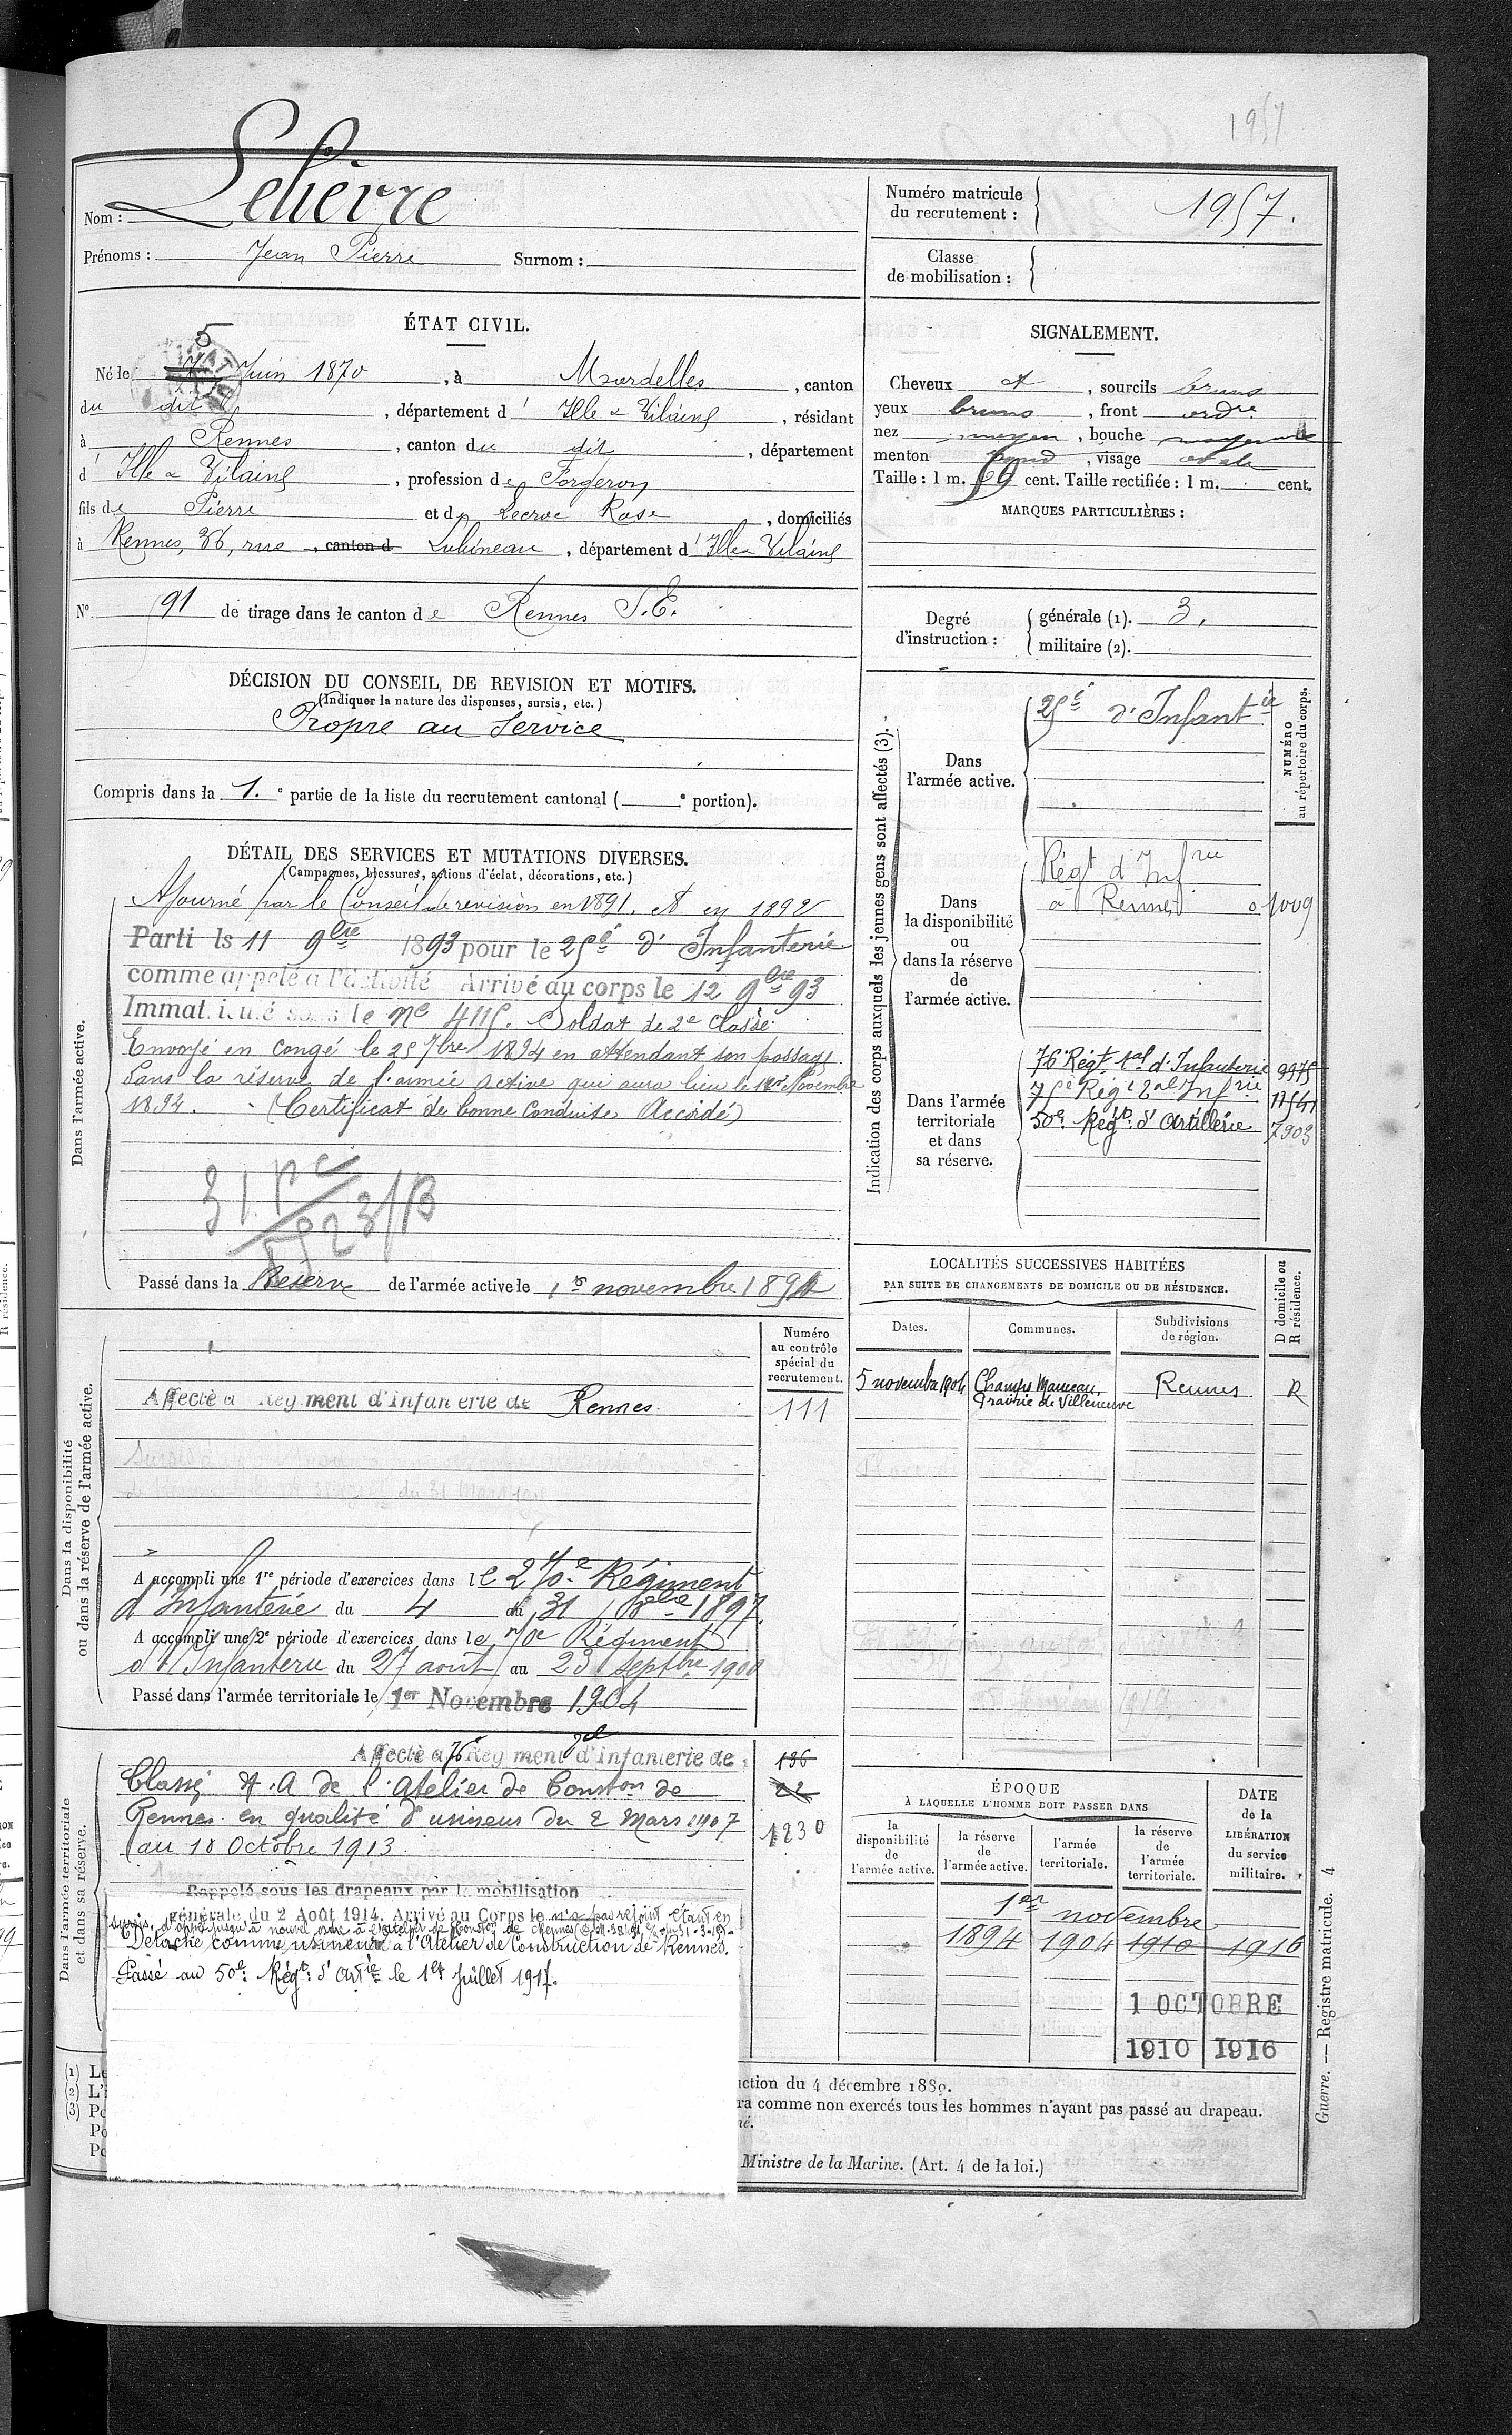 1957
Nom : Lelièvre
Prénoms : Jean Pierre Surnom :
Numéro matricule du recrutement : 1957.
Classe de mobilisation :
ÉTAT CIVIL.
5
Né le Juin 1870, à Mordelles, canton
du dit, département d' Ille & Vilaine, résidant
à Rennes, canton du dit, département
d' Ille & Vilaine, profession de Forgeron
fils de Pierre et de Lecroc Rose, domiciliés
à Rennes, 36, rue canton d, département d' Ille & Vilaine
N° 91 de tirage dans le canton de Rennes S.E.
SIGNALEMENT.
Cheveux et, sourcils bruns
yeux bruns, front ordre
nez moyen, bouche moyenne
menton rond, visage ovale
Taille : 1 m. 59 cent. Taille rectifiée : 1 m. cent.
MARQUES PARTICULIÈRES :
Degré d'instruction : générale (1). 3.
militaire (2).
DÉCISION DU CONSEIL DE REVISION ET MOTIFS.
(Indiquer la nature des dispenses, sursis, etc.)
Propre au Service
Compris dans la 1.e partie de la liste du recrutement cantonal ( e portion).
DÉTAIL DES SERVICES ET MUTATIONS DIVERSES.
(Campagnes, blessures, actions d'éclat, décorations, etc.)
Dans l'armée active.
Ajourné par le Conseil de revision en 1891. et en 1892
Parti le 11 9bre 1893 pour le 25e d' Infanterie
comme appelé à l'activité Arrivé au corps le 12 9bre 93
Immatriculé sous le No 4115. Soldat de 2e Classe
Envoyé en congé le 25 7bre 1894 en attendant son passage
dans la réserve de l'armée active qui aura lieu le 1er Novembre
1894. - (Certificat de bonne Conduite Accordé)
Passé dans la Réserve de l'armée active le 1er novembre 1894
Indication des corps auxquels les jeunes gens sont affectés (3).
NUMÉRO au répertoire du corps.
Dans l'armée active.
25e d'Infantie
Dans la disponibilité ou dans la réserve de l'armée active.
Régt d'Infrie
à Rennes 0.1009
Dans l'armée territoriale et dans sa réserve.
76e Régt. tal d'Infanterie 9975
75e Régt tal Infrie 17541
50e Régt d'Artillerie 7903
LOCALITÉS SUCCESSIVES HABITÉES
PAR SUITE DE CHANGEMENTS DE DOMICILE OU DE RÉSIDENCE.
Dates. Communes. Subdivisions de région. D domicile ou R résidence.
5 novembre 1904 Champs Manceau, Prairie de Villeneuve Rennes R
Dans la disponibilité ou dans la réserve de l'armée active.
Numéro au contrôle spécial du recrutement.
Affecté à Régiment d'Infanterie de Rennes. 111
A accompli une 1re période d'exercices dans le 270e Régiment
d'Infanterie du 4 au 31 8bre 1897.
A accompli une 2e période d'exercices dans le 70e Régiment
d'Infanterie du 27 août au 23 septbre 1900
Passé dans l'armée territoriale le 1er Novembre 1904
Dans l'armée territoriale et dans sa réserve.
Affecté au 76 Régiment tal d'Infanterie de 136
Classé A. A de l'Atelier de Conston de
Rennes en qualité d'usineur du 2 Mars 1907
au 10 Octobre 1913. 1230
Rappelé sous les drapeaux par la mobilisation
générale du 2 Août 1914. Arrivé au Corps le n'a pas rejoint étant en
sursis d'appel jusqu'à nouvel ordre à l'atelier de conston de Rennes
Détaché comme usineur à l'Atelier de Construction de Rennes.
Passé au 50e Régt d'Artie le 1er Juillet 1917.
ÉPOQUE
À LAQUELLE L'HOMME DOIT PASSER DANS
la disponibilité de l'armée active. la réserve de l'armée active. l'armée territoriale. la réserve de l'armée territoriale.
DATE de la LIBÉRATION du service militaire.
1er novembre
1894 1904 1910 1916
1 OCTOBRE
1910 1916
ction du 4 décembre 1889.
ra comme non exercés tous les hommes n'ayant pas passé au drapeau.
né.
Ministre de la Marine. (Art. 4 de la loi.)
Guerre. — Registre matricule. 4